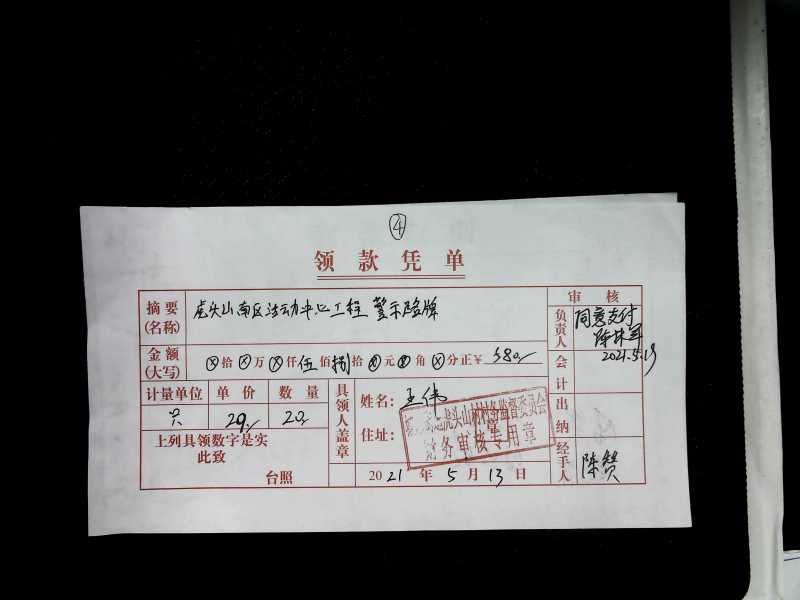 ④
领款凭单
摘要(名称) 虎头山南区活动中心工程 警示险牌
审核
负责人 同意支付
2021.5.19
金额(大写) ⊗拾⊗万⊗仟伍佰捌拾 元 角⊗分正￥ 580
会计
计量单位 单价 数量
只 29 20
具领人盖章
姓名: 王伟
住址:
虎头山村村务监督委员会
财务审核专用章
出纳
上列具领数字是实
此致
台照
2021年5月13日
经手人 陈赞